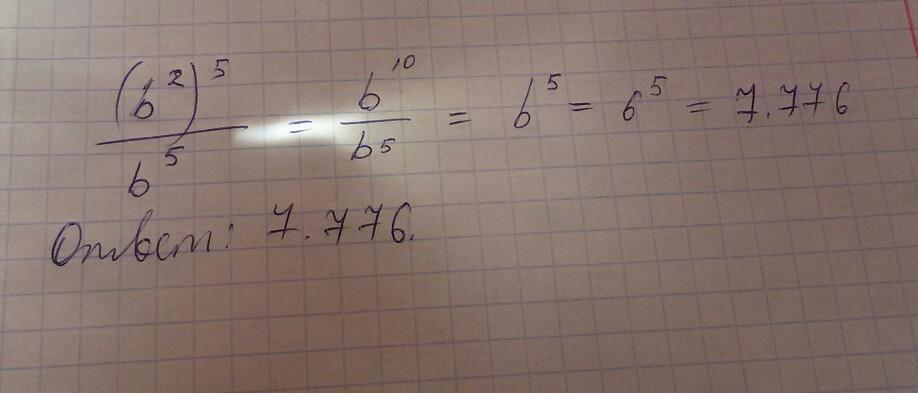 (b²)⁵/b⁵ = b¹⁰/b⁵ = b⁵ = 6⁵ = 7.776
Ответ: 7.776.